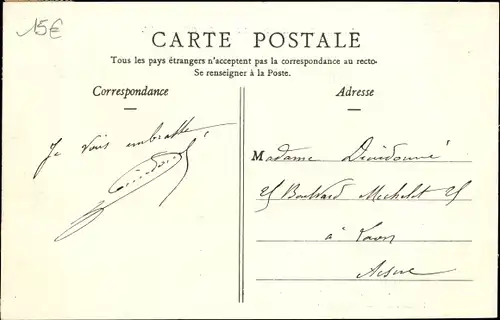 15€
CARTE POSTALE
Tous les pays étrangers n'acceptent pas la correspondance au recto-
Se renseigner à la Poste.
Correspondance
Adresse
Je vous
Madame Dieudonné
25 Boulvard Michelet 25
à Laon
Aisne